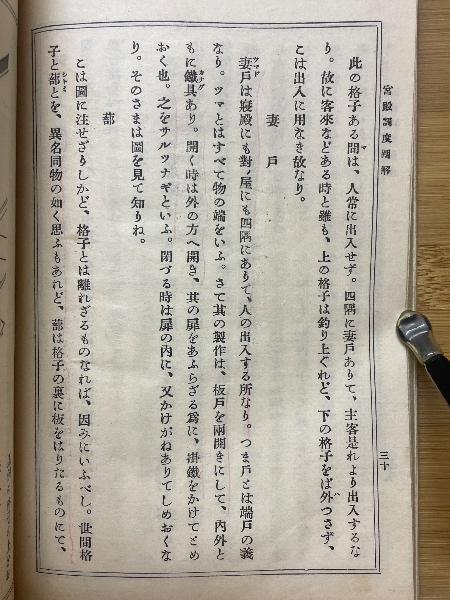 宮殿調度圖解
三十
此の格子ある間は、人常に出入せず。四隅に妻戸ありて、主客是れより出入するな
り。故に客來などある時と雖も、上の格子は釣り上ぐれど、下の格子をば外づさず、
こは出入に用なき故なり。
妻戸
妻戸は寢殿にも對ノ屋にも四隅にありて、人の出入する所なり。つま戸とは端戸の義
なり。ツマとはすべて物の端をいふ。さて其の製作は、板戸を兩開きにして、内外と
もに鐵具あり。開く時は外の方へ開き、其の扉をあふらざる爲に、掛鐵をかけてとめ
おく也。之をサルツナギといふ。閉づる時は扉の内に、又かけがねありてしめおくな
り。そのさまは圖を見て知りね。
蔀
こは圖に注せざりしかど、格子とは離れざるものなれば、因みにいふべし。世間格
子と蔀とを、異名同物の如く思ふもあれど、蔀は格子の裏に板をはりたるものにて、